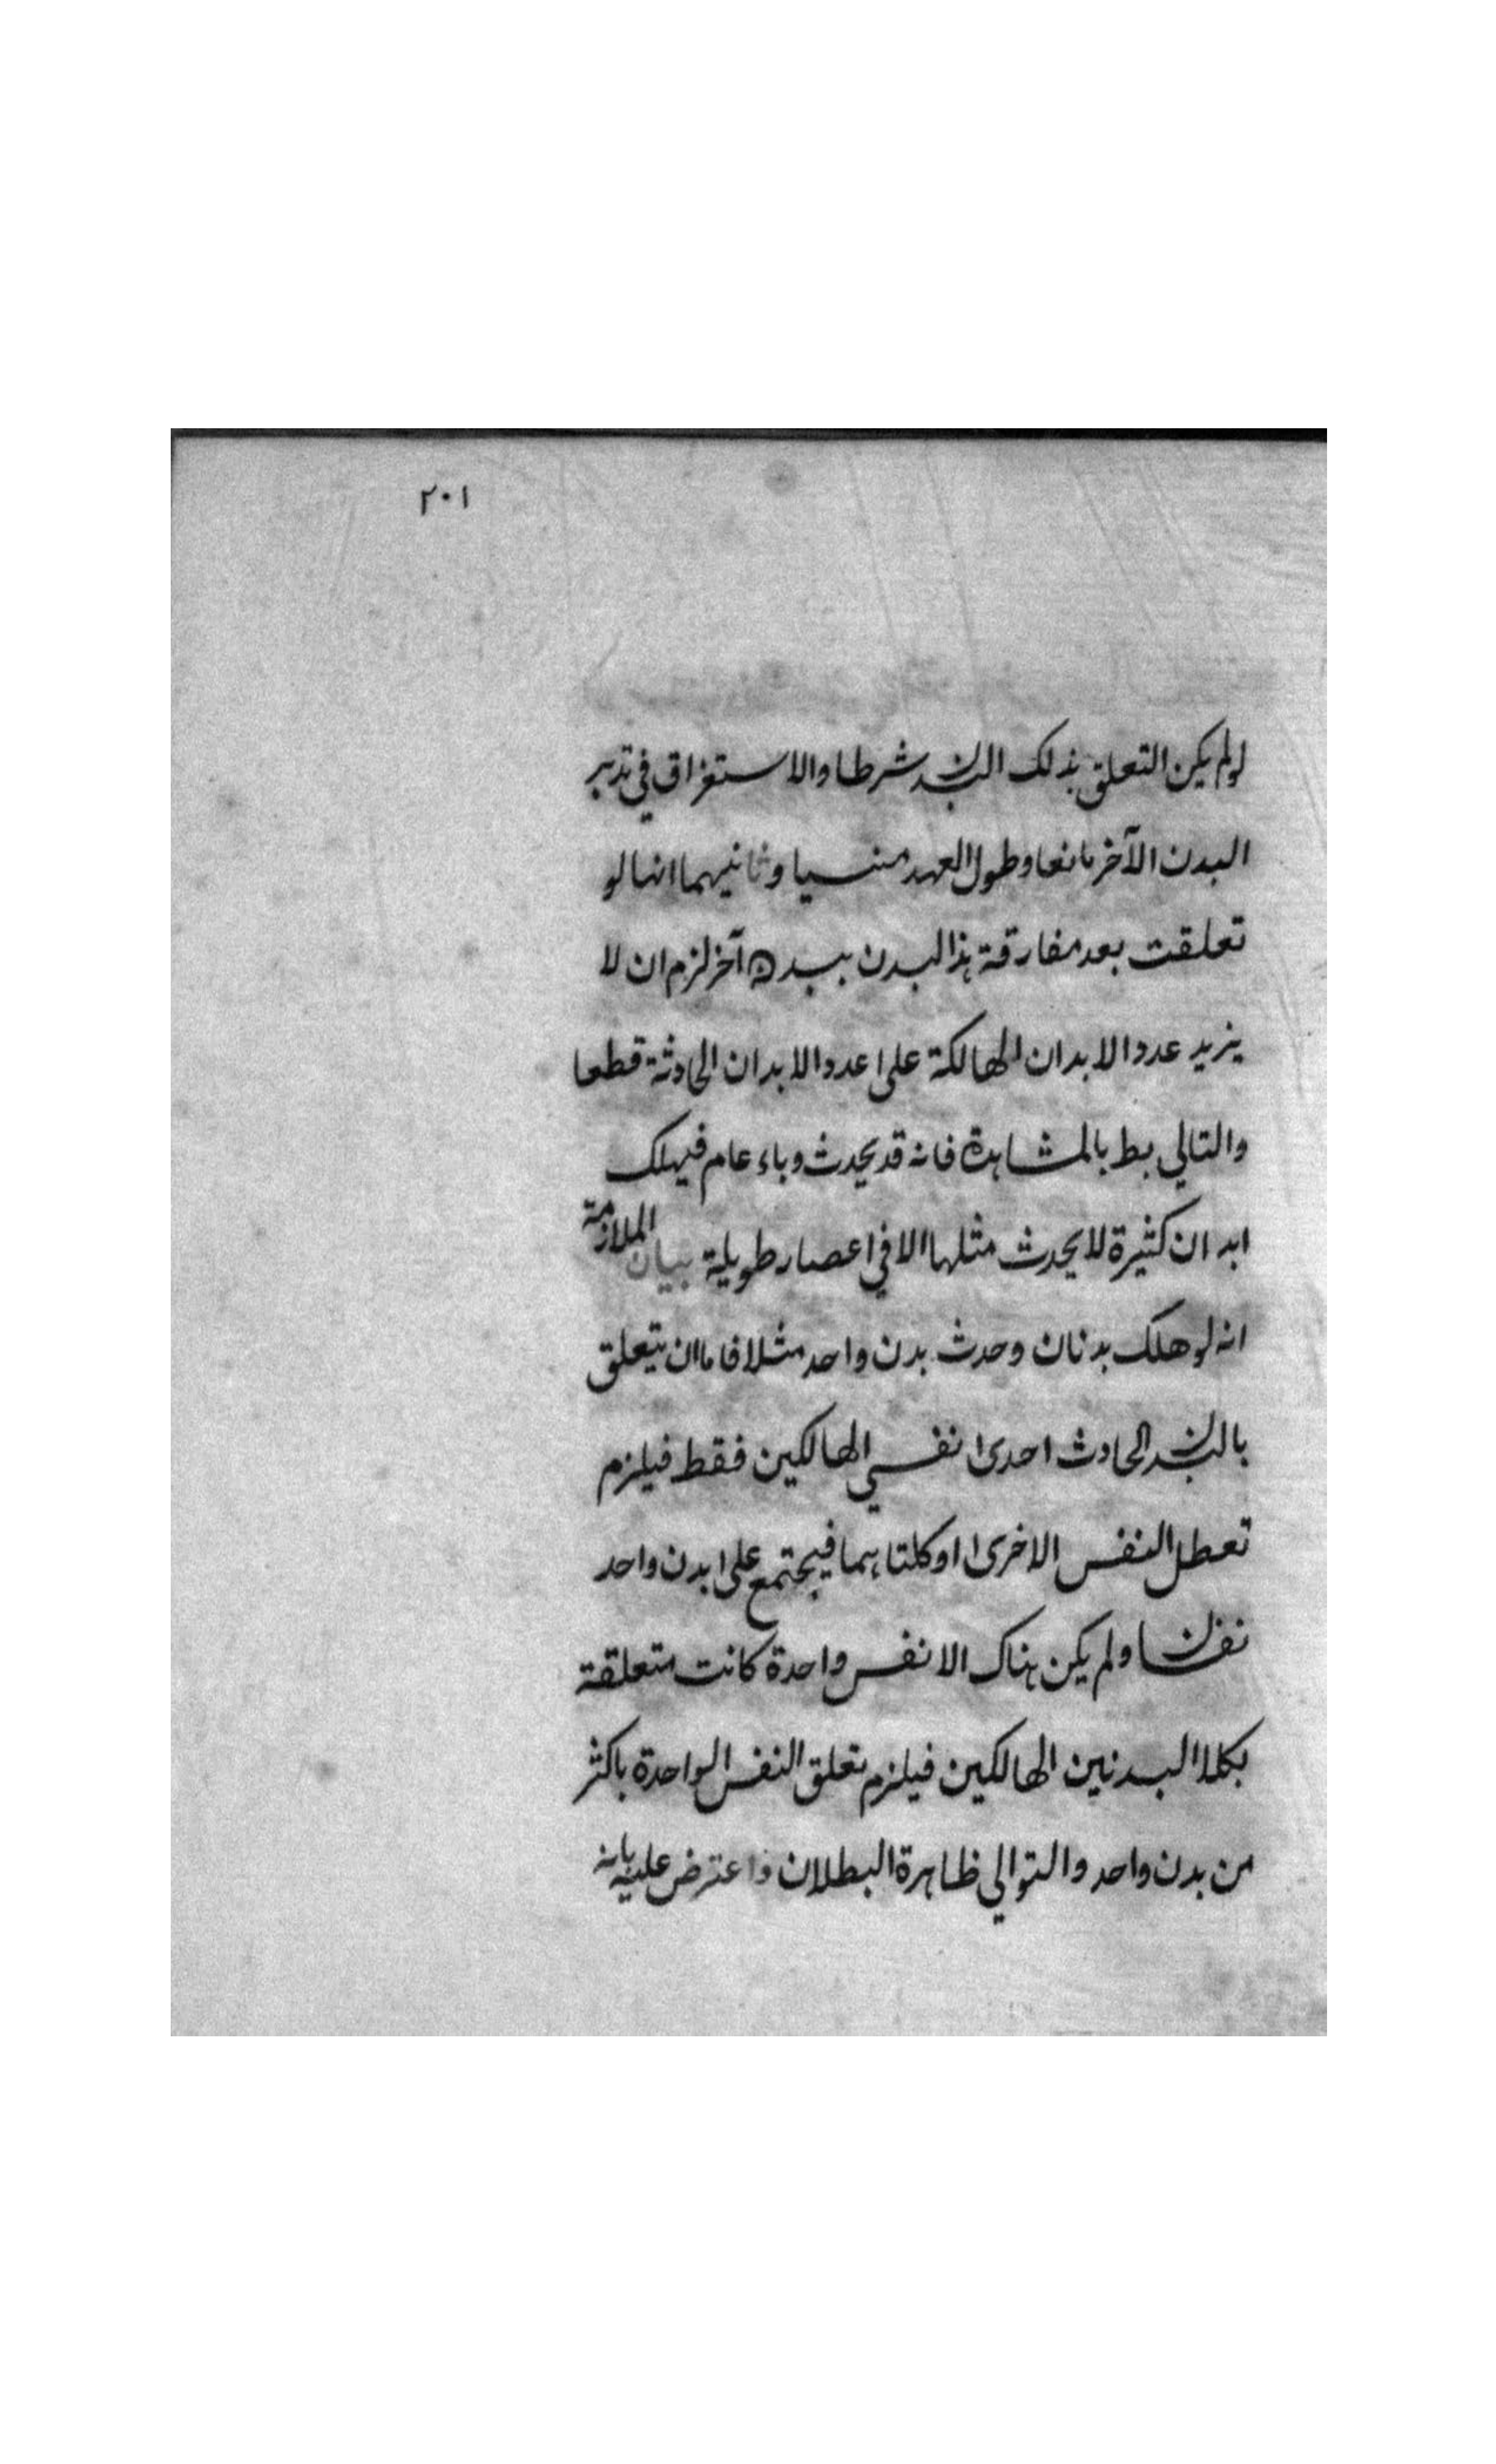 ٢٠١
لو لم يكن التعلق بذلك البدن شرطا والاستغراق في تدبير
البدن الآخر مانعا وطول العهد منسيا وثانيهما انها لو
تعلقت بعد مفارقة هذا البدن ببدن آخر لزم ان لا
يزيد عدد الابدان الهالكة على عدد الابدان الحادثة قطعا
والتالي بط بالمشاهدة فانه قد يحدث وباء عام فيهلك
ابدان كثيرة لا يحدث مثلها الا في اعصار طويلة بيان الملازمة
انه لو هلك بدنان وحدث بدن واحد مثلا فاما ان يتعلق
بالبدن الحادث احدى نفسي الهالكين فقط فيلزم
تعطل النفس الاخرى او كلتاهما فيجتمع على بدن واحد
نفسان او لم يكن هناك الا نفس واحدة كانت متعلقة
بكلا البدنين الهالكين فيلزم تعلق النفس الواحدة باكثر
من بدن واحد والتوالي ظاهرة البطلان واعترض عليه بانه